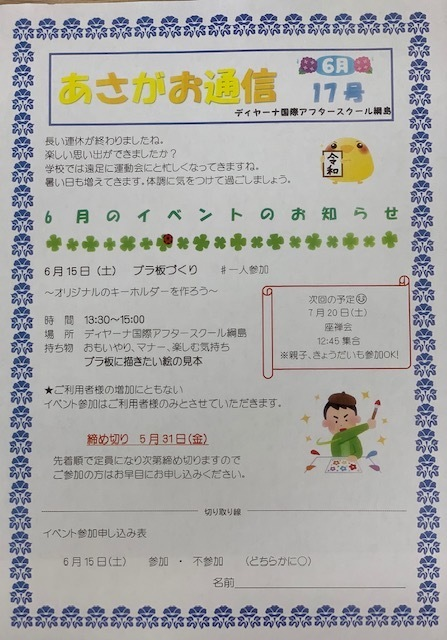 あさがお通信
6月
17号
デイヤーナ国際アフタースクール綱島
長い連休が終わりましたね。
楽しい思い出ができましたか？
学校では遠足に運動会にと忙しくなってきますね。
暑い日も増えてきます。体調に気をつけて過ごしましょう。
令和
6月のイベントのお知らせ
6月15日（土）　プラ板づくり　♯一人参加
～オリジナルのキーホルダーを作ろう～
時　間　13:30～15:00
場　所　ディヤーナ国際アフタースクール綱島
持ち物　おもいやり、マナー、楽しむ気持ち
プラ板に描きたい絵の見本
次回の予定
7月20日（土）
座禅会
12:45 集合
※親子、きょうだいも参加OK!
★ご利用者様の増加にともない
イベント参加はご利用者様のみとさせていただきます。
締め切り　5月31日（金）
先着順で定員になり次第締め切りますので
ご参加の方はお早目にお申し込みください。
切り取り線
イベント参加申し込み表
6月15日（土）　参加　・　不参加　（どちらかに〇）
名前